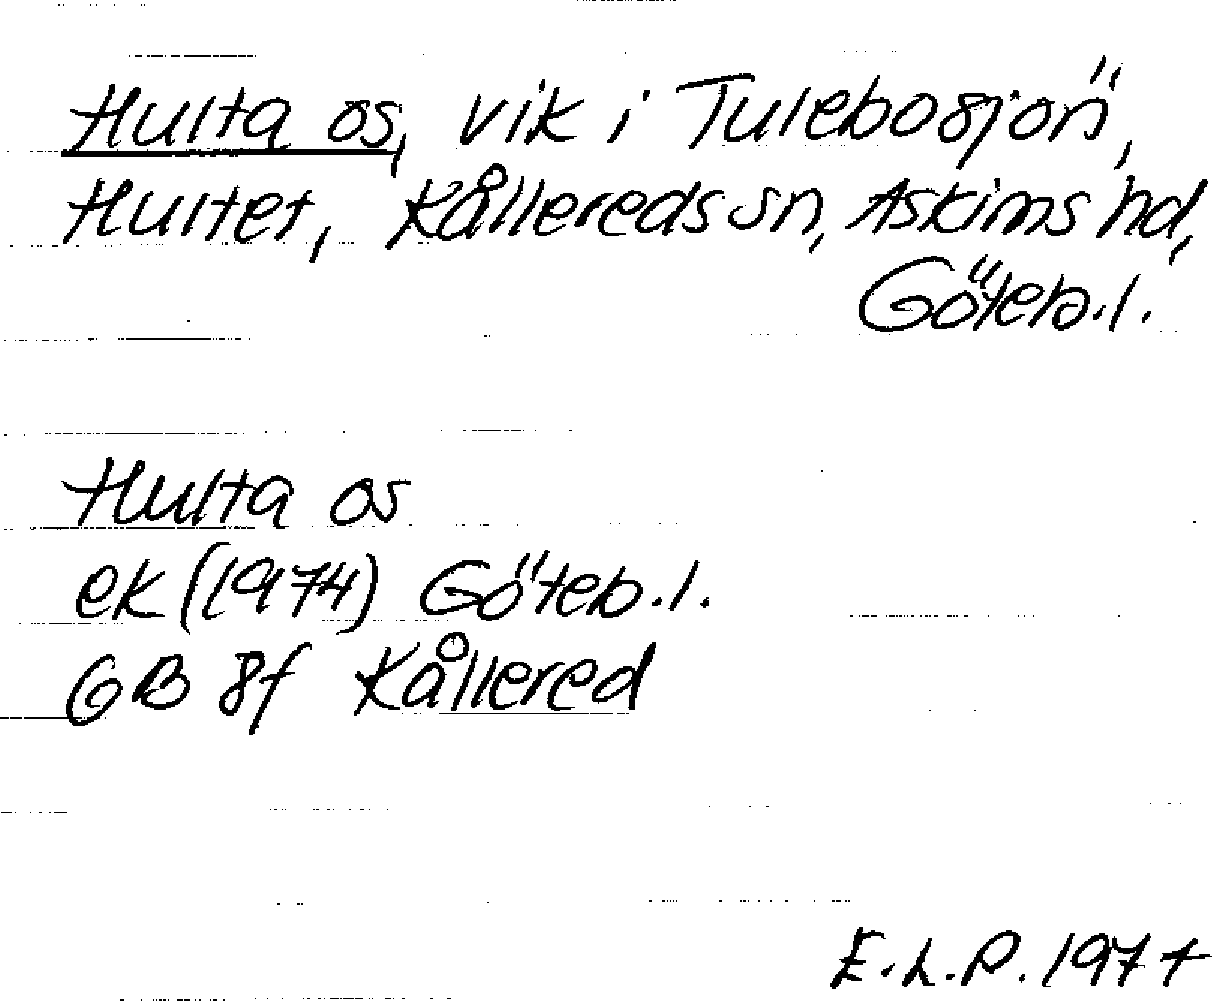 Hulta os, vik i Tulebosjön,
Hultet, Kållereds sn, Askims hd,
Göteb.l.
Hulta os
ek (1974) Göteb.l.
GB 8f Kållered
E.L.P.